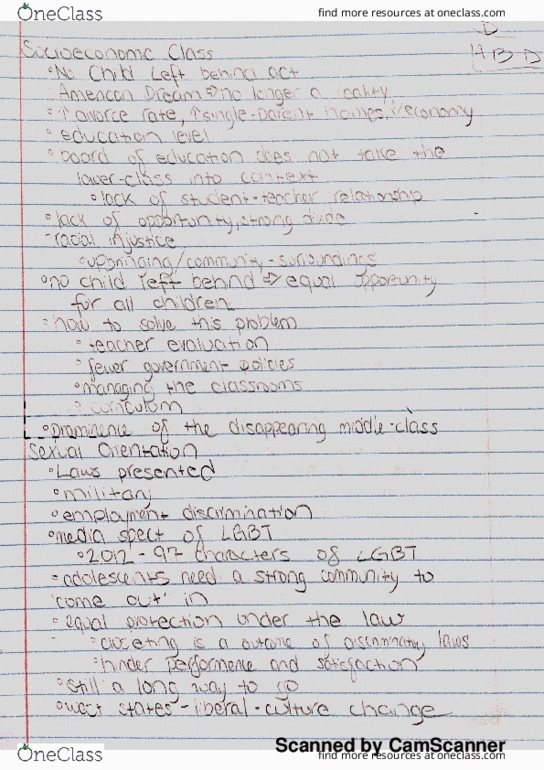 OneClass
find more resources at oneclass.com
D
H B D
Socioeconomic Class
No Child Left behind act
American Dream ⇒ no longer a reality
↑ divorce rate, ↑ single-parent homes, economy
education level
board of education does not take the
lower-class into context
lack of student-teacher relationship
lack of opportunity, strong divide
racial injustice
upbringing/community-surroundings
no child left behind ⇒ equal opportunity
for all children
how to solve this problem
teacher evaluation
fewer government policies
managing the classrooms
curriculum
prominence of the disappearing middle-class
Sexual Orientation
Laws presented
military
employment discrimination
media spect of LGBT
2012 - 97 characters of LGBT
adolescents need a strong community to
'come out' in
equal protection under the law
closeting is a outcome of discriminatory laws
hinder performence and satisfaction
still a long way to go
west states - liberal - culture change
Scanned by CamScanner
OneClass
find more resources at oneclass.com